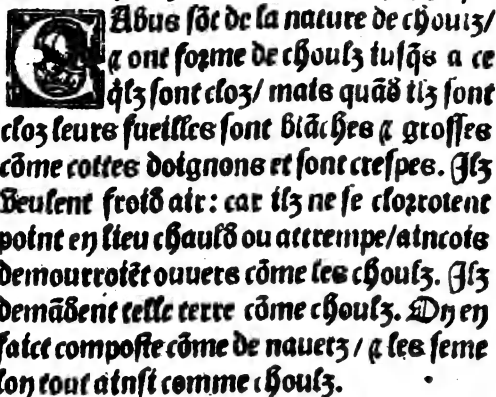 CAbus sõt de la nature de choulz/
⁊ ont forme de choulz iusq̃s a ce
q̃lz sont cloz/ mais quãd ilz sont
cloz leurs fueilles sont blãches ⁊ grosses
cõme cottes doignons et sont crespes. Ilz
veulent froid air: car ilz ne se clorroient
point en lieu chauld ou attrempe/aincois
demourroiẽt ouuers cõme les choulz. Ilz
demãdent telle terre cõme choulz. On en
faict composte cõme de nauetz/ ⁊ les seme
lon tout ainsi comme choulz.